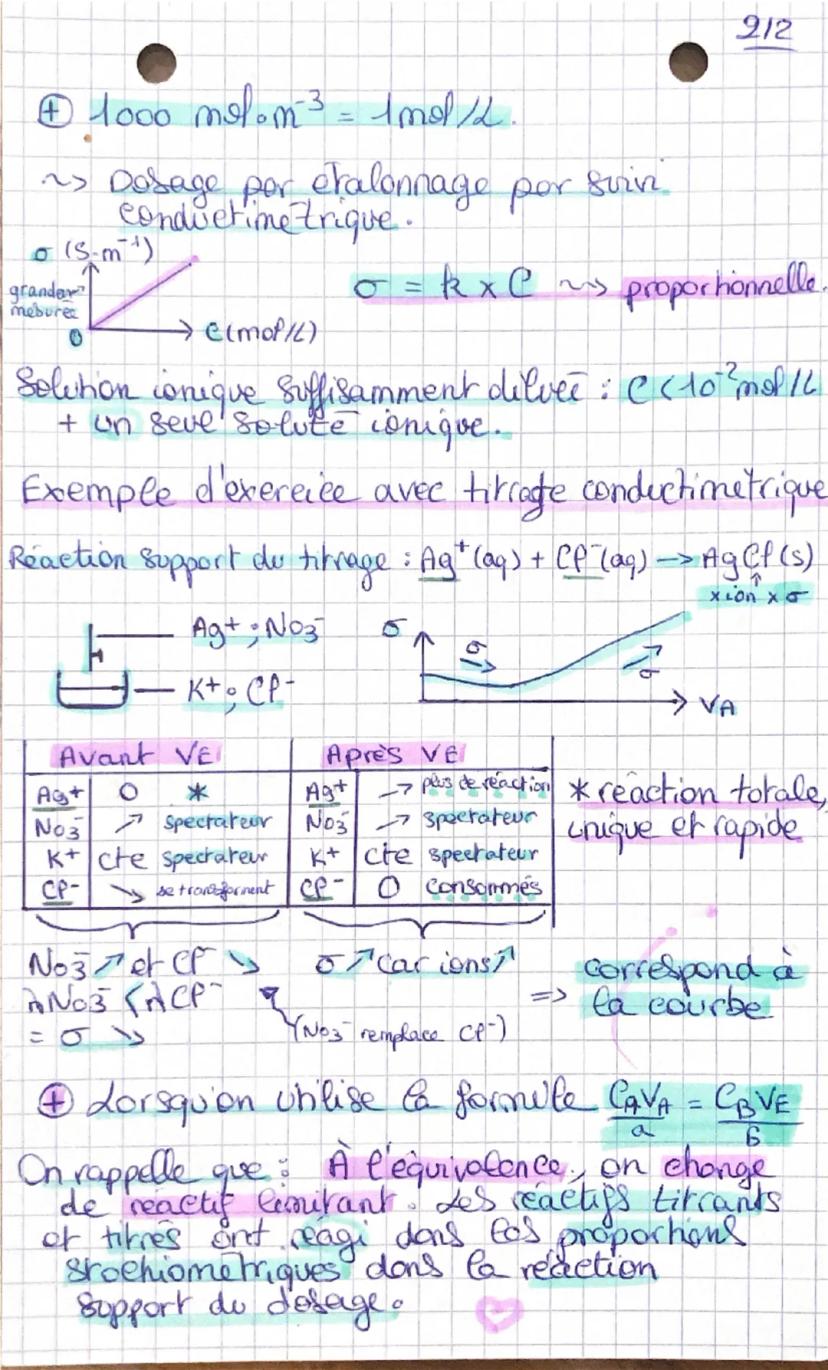 2/2
⊕ 1000 mol.m⁻³ = 1mol/L.
~> Dosage par étalonnage par suivi
conductimétrique.
σ (S.m⁻¹)
grandeur
mesurée
0
C(mol/L)
σ = k x C ~> proportionnelle.
Solution ionique suffisamment diluée : C < 10⁻² mol/L
+ un seul soluté ionique.
Exemple d'exercice avec titrage conductimétrique
Réaction support du titrage : Ag⁺(aq) + Cl⁻(aq) → AgCl(s)
x ion x σ
Ag⁺ ; NO₃⁻
K⁺ ; Cl⁻
σ
σ
σ
VA
Avant VE | Après VE
Ag⁺ | 0 * | Ag⁺ | ↗ plus de réaction
NO₃⁻ | ↗ spectateur | NO₃⁻ | ↗ spectateur
K⁺ | cte spectateur | K⁺ | cte spectateur
Cl⁻ | ↘ se transforment | Cl⁻ | 0 consommés
* réaction totale,
unique et rapide
NO₃⁻ ↗ et Cl⁻ ↘
λNO₃⁻ < λCl⁻
= σ ↘
(NO₃⁻ remplace Cl⁻)
σ ↗ car ions ↗
=> correspond à
la courbe
⊕ Lorsqu'on utilise la formule CAVA/a = CBVE/b
On rappelle que : À l'équivalence, on change
de réactif limitant. Les réactifs titrants
et titrés ont réagi dans les proportions
stoechiométriques dans la réaction
support du dosage.